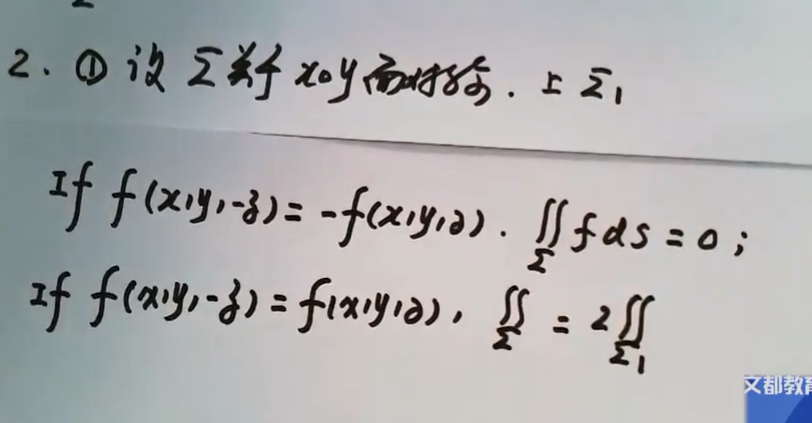 2. ① 设 Σ关于 xoy 面对称. 上 Σ₁
If f(x,y,-z)=-f(x,y,z). ∬_Σ f ds = 0;
If f(x,y,-z)=f(x,y,z), ∬_Σ = 2∬_Σ₁
文都教育